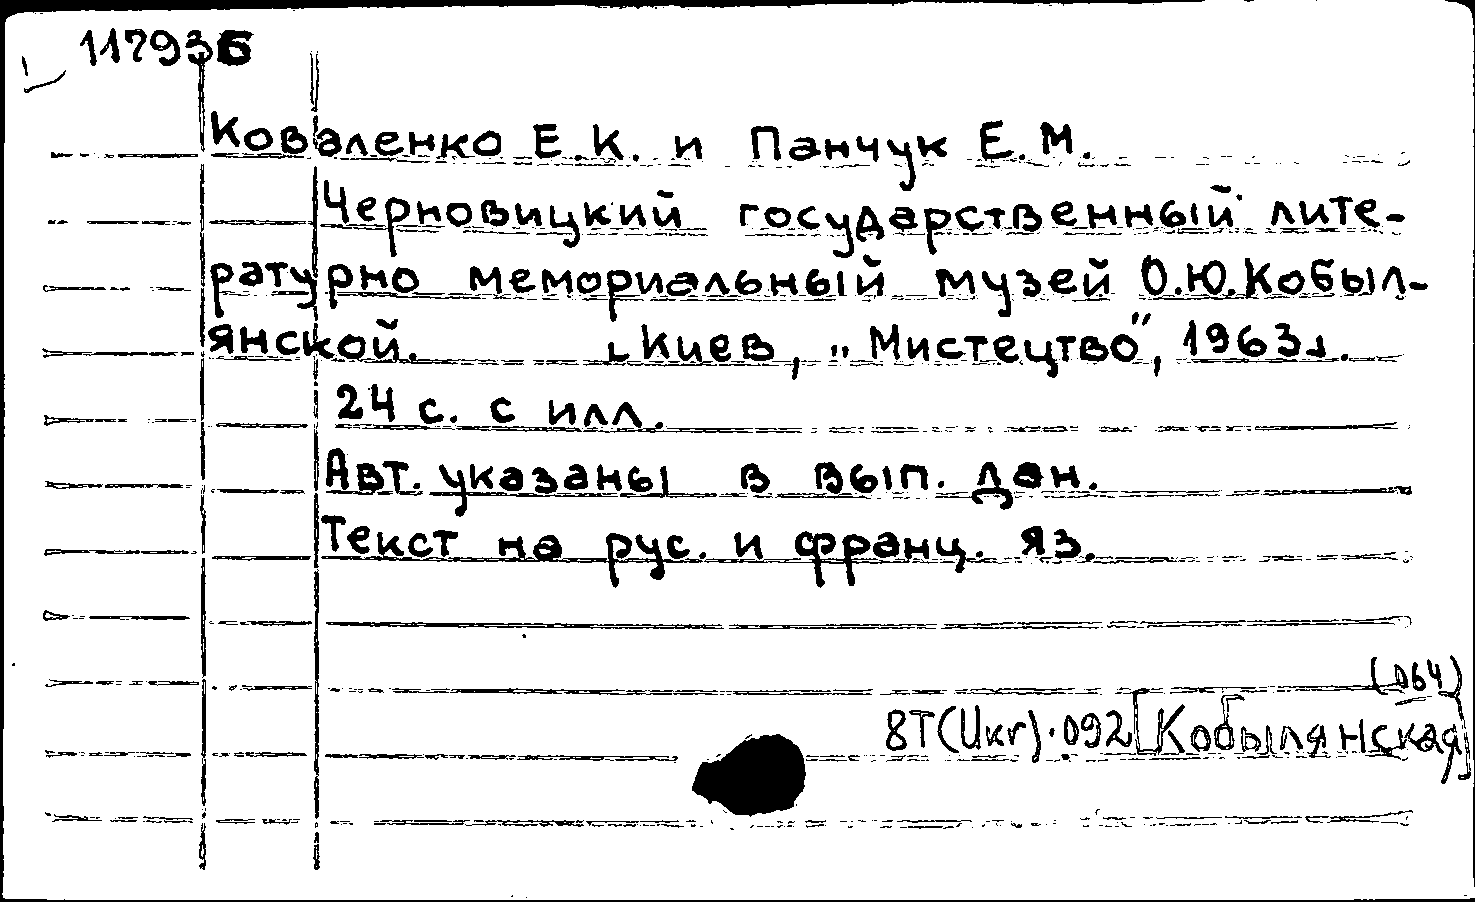 11793Б
Коваленко Е.К. и Панчук Е.М.
Черновицкий государственный лите-
ратурно мемориальный музей О.Ю.Кобыл-
янской. [Киев, „Мистецтво”, 1963].
24 с. с илл.
Авт. указаны в вып. дан.
Текст на рус. и франц. яз.
(064)
8Т(Ukr)·092[Кобылянская]